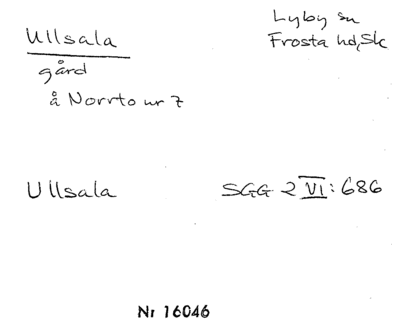 Ullsala
Lyby sn
Frosta hd, Sk
gård
å Norrto nr 7
Ullsala
SGG 2 VI: 686
Nr 16046